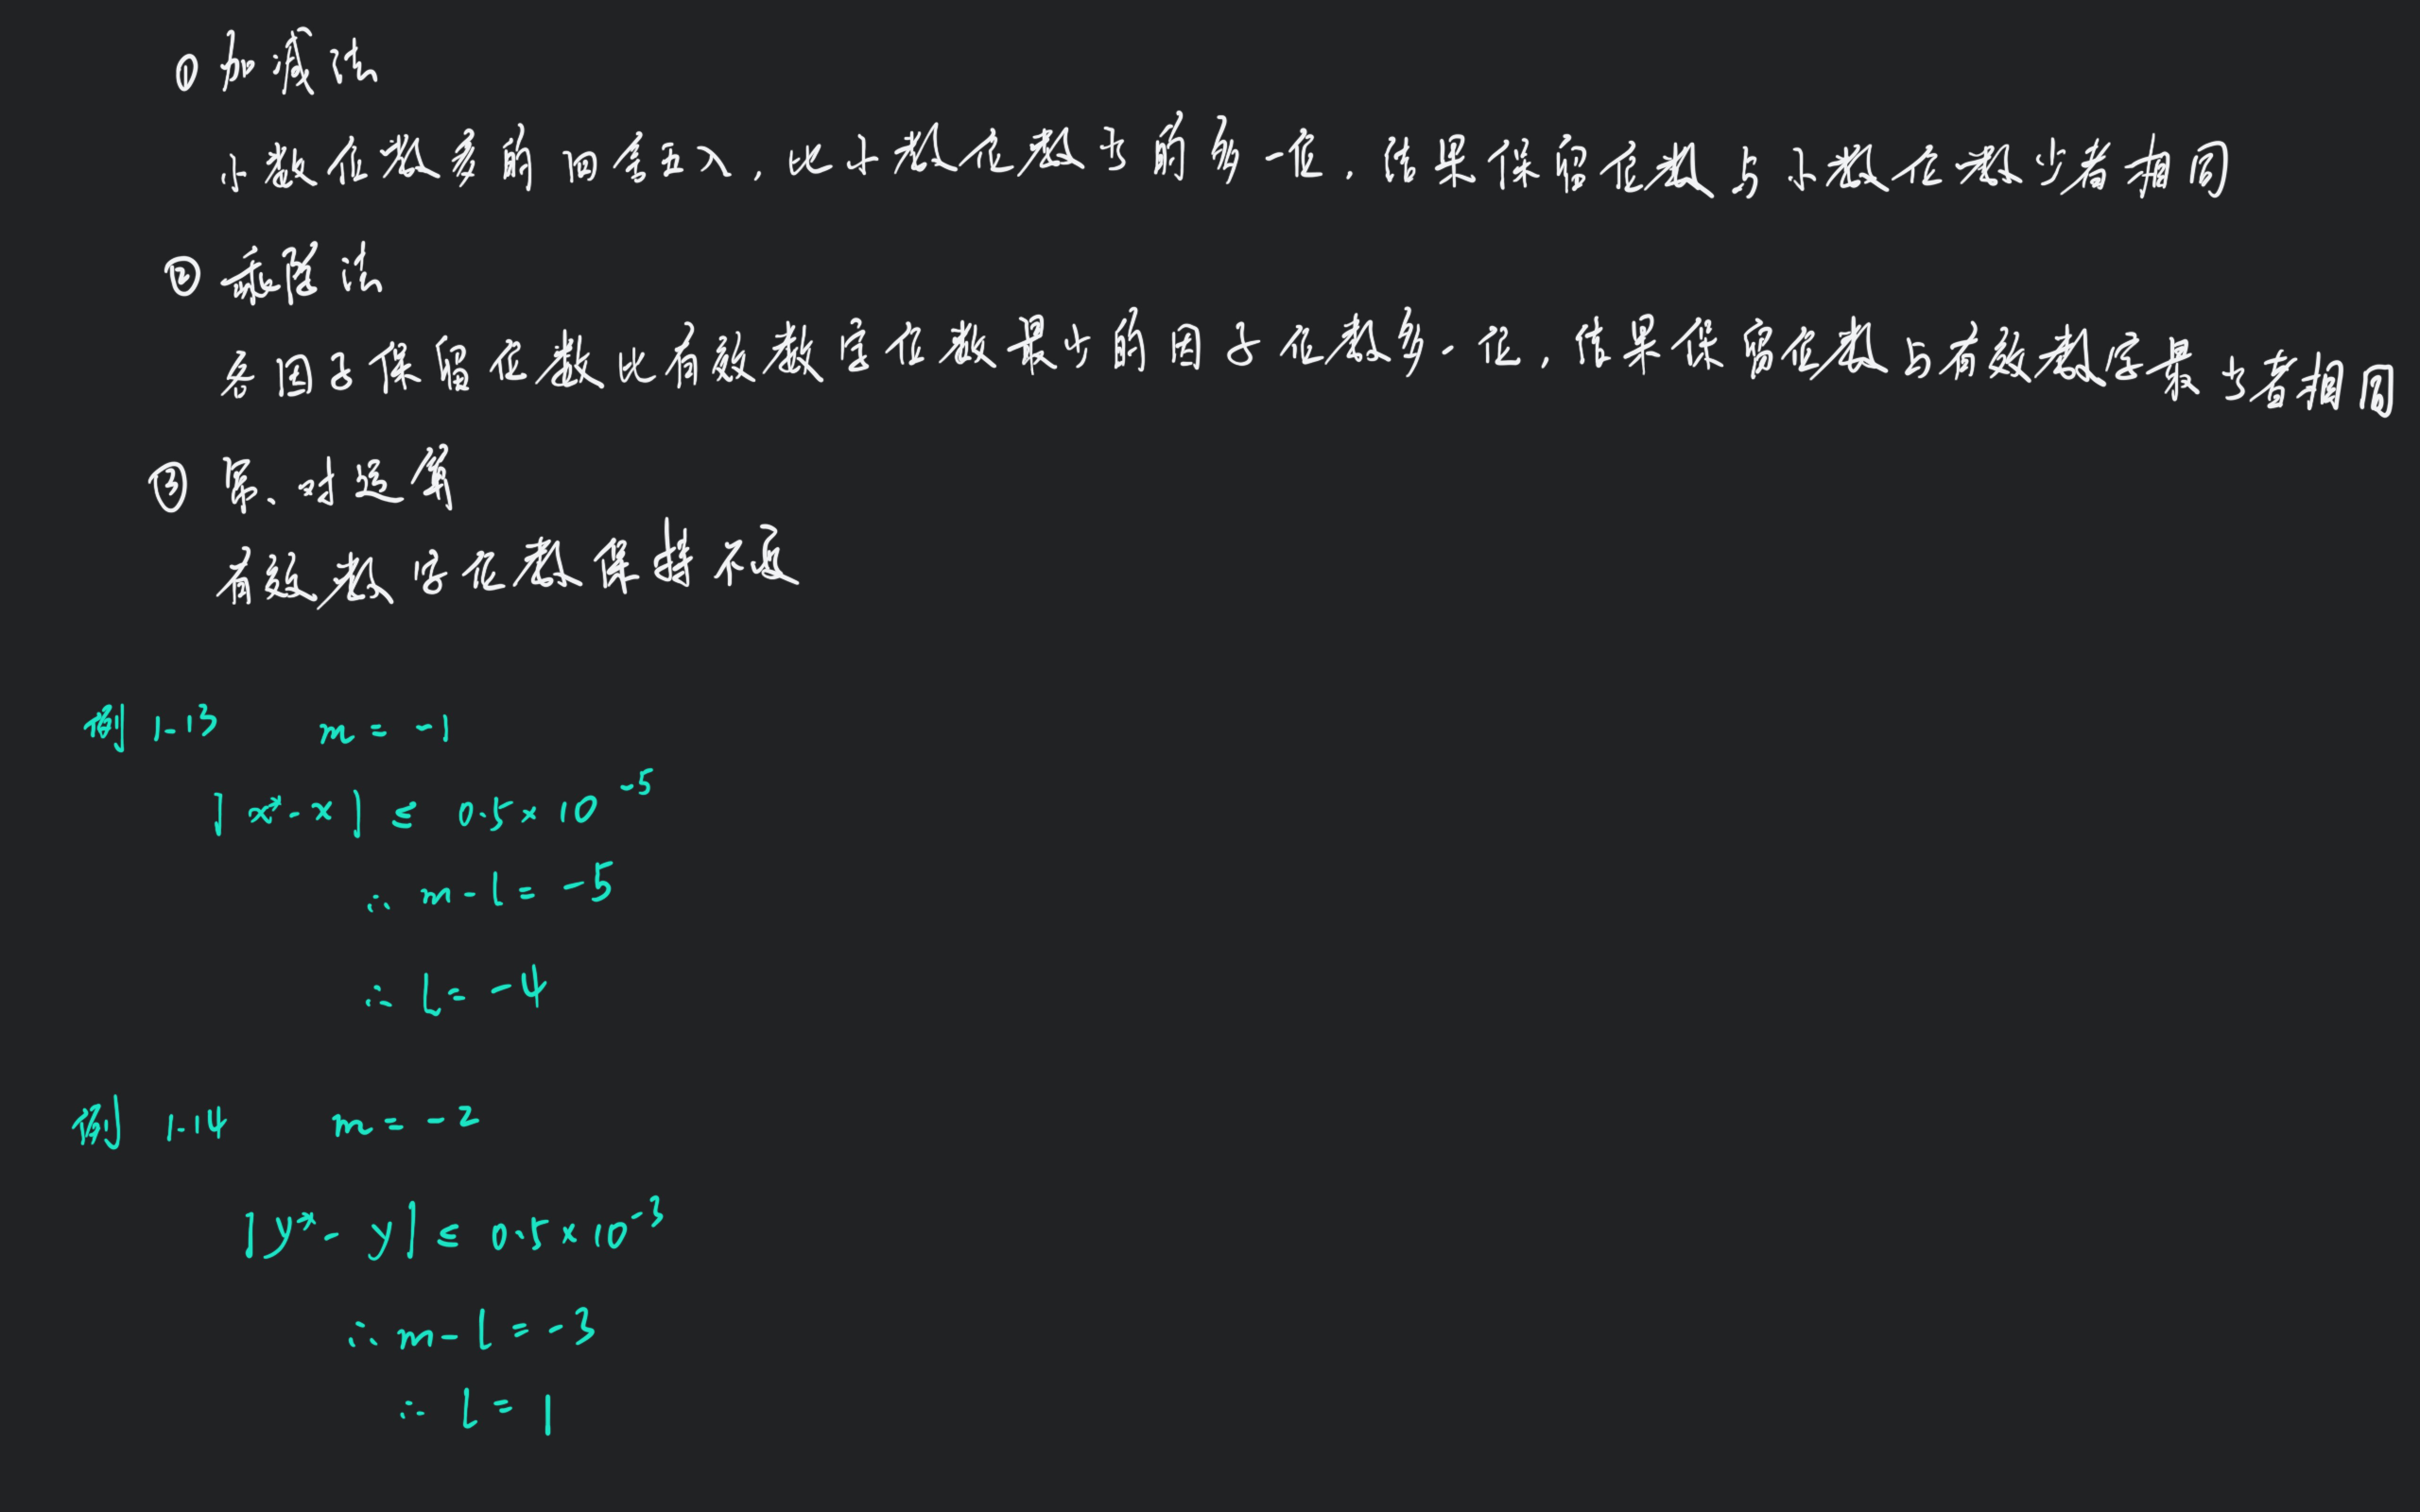 ① 加减法
小数位数多的四舍五入，比小数位数少的多一位，结果保留位数与小数位数少者相同
② 乘除法
各因子保留位数比有效数字位数最少的因子位数多一位，结果保留位数与有效数字最少者相同
③ 幂、对运算
有效数字位数保持不变
例 1-13 m = -1
|x*-x| ≤ 0.5×10^-5
∴ m-l = -5
∴ l = -4
例 1-14 m = -2
|y*-y| ≤ 0.5×10^-3
∴ m-l = -3
∴ l = 1